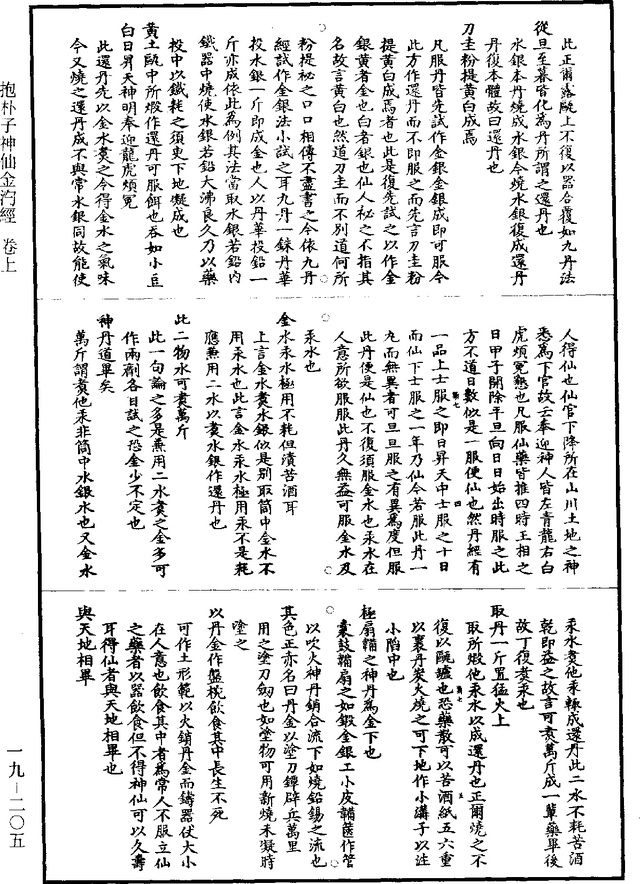 此正爾落甌上不復以器合覆如九丹法
從旦至暮皆化為丹所謂之還丹也
水銀本丹燒成水銀今燒水銀復成還丹
丹復本體故曰還丹也
刀圭粉提黃白成焉
凡服丹皆先試作金銀金銀成即可服今
此方作還丹而不即服之而先言刀圭粉
提黃白成焉者也此是復先試之以作金
銀黃者金也白者銀也仙人秘之不指其
名故言黃白也然道刀圭而不別道何所
粉提秘之口口相傳不盡書之今依九丹
經試作金銀法小試之耳九丹一銖丹華
投水銀一斤即成金也人以丹華投鉛一
斤亦成依此為例其法當取水銀若鉛內
鐵器中燒使水銀若鉛大沸良久乃以藥
投中以鐵耗之須臾下地凝成也
黃土甌中所煅作還丹可服餌也吞如小豆
白日昇天神明奉迎龍虎煩冤
此還丹先以金水煑之令得金水之氣味
今又燒之還丹成不與常水銀同故能使
人得仙也仙官下降所在山川土地之神
悉為下官故云奉迎神人皆左青龍右白
虎煩冤懇也凡服仙藥皆推四時王相之
日甲子開除平旦向日日始出時服之此
方不道日數似是一服便仙也然丹經有
一品上士服之即日昇天中士服之十日
而仙下士服之一年乃仙今若服此丹一
丸而無異者可旦旦服之有異為度但服
此丹便是仙也不復須服金水也汞水在
人意所欲服服此丹久無益可服金水及
汞水也
金水汞水極用不耗但漬苦酒耳
上言金水煑水銀似是別取筒中金水不
用汞水也此言金水汞水極用汞不是耗
應兼用二水以煑水銀作還丹也
此二物水可煑萬斤
此一句論之多是兼用二水煑之金多可
作兩劑各日試之恐金少不定也
神丹道畢矣
萬斤謂煑他汞非筒中水銀水也又金水
汞水煑他汞轉成還丹此二水不耗苦酒
乾即益之故言可煑萬斤成一輩藥畢後
故丁復煑汞也
取丹一斤置猛火上
取所煅他汞水以成還丹也正爾燒之不
復以甌壚也恐藥散可以苦酒紙五六重
以裹丹炭火燒之可下地作小溝子以注
小陷中也
極扇鞴之神丹為金下也
橐鼓鞴扇之如鍛金銀工小皮鞴篋作管
以吹火神丹銷合流下如燒鉛錫之流也
其色正赤名曰丹金以塗刀鐔辟兵萬里
用之塗刀劒也如塗物可用新燒未凝時
塗之
以丹金作盤椀飲食其中長生不死
可作土形範以火銷丹金而鑄器伏大小
在人意也飲食其中者為常人不服立仙
之藥者以器飲食但不得神仙可以久壽
耳得仙者與天地相畢也
與天地相畢
抱朴子神仙金汋經 卷上
一九－二〇五